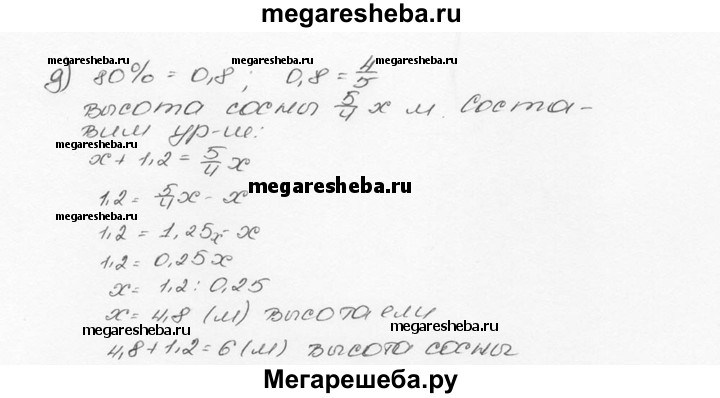 megaresheba.ru
megaresheba.ru megaresheba.ru megaresheba.ru
д) 80% = 0,8; 0,8 = 4/5
высота сосны 5/4 x м. Соста-
вим ур-ие:
megaresheba.ru
x + 1,2 = 5/4 x
1,2 = 5/4 x - x
megaresheba.ru
megaresheba.ru
1,2 = 1,25x - x
1,2 = 0,25x
x = 1,2 : 0,25
x = 4,8 (м) высота ели
megaresheba.ru megaresheba.ru
4,8 + 1,2 = 6 (м) высота сосны
Мегарешеба.ру